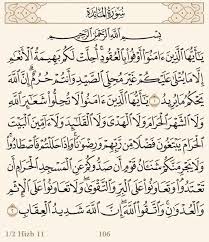 سُورَةُ المَائِدَةِ
بِسْمِ اللَّهِ الرَّحْمَٰنِ الرَّحِيمِ
يَٰٓأَيُّهَا الَّذِينَ ءَامَنُوٓا۟ أَوْفُوا۟ بِالْعُقُودِ أُحِلَّتْ لَكُم بَهِيمَةُ الْأَنْعَٰمِ
إِلَّا مَا يُتْلَىٰ عَلَيْكُمْ غَيْرَ مُحِلِّي الصَّيْدِ وَأَنتُمْ حُرُمٌ إِنَّ اللَّهَ
يَحْكُمُ مَا يُرِيدُ ١ يَٰٓأَيُّهَا الَّذِينَ ءَامَنُوا۟ لَا تُحِلُّوا۟ شَعَٰٓئِرَ اللَّهِ
وَلَا الشَّهْرَ الْحَرَامَ وَلَا الْهَدْيَ وَلَا الْقَلَٰٓئِدَ وَلَآ ءَآمِّينَ الْبَيْتَ الْحَرَامَ
يَبْتَغُونَ فَضْلًا مِّن رَّبِّهِمْ وَرِضْوَٰنًا وَإِذَا حَلَلْتُمْ فَاصْطَادُوا۟
وَلَا يَجْرِمَنَّكُمْ شَنَـَٔانُ قَوْمٍ أَن صَدُّوكُمْ عَنِ الْمَسْجِدِ الْحَرَامِ
أَن تَعْتَدُوا۟ وَتَعَاوَنُوا۟ عَلَى الْبِرِّ وَالتَّقْوَىٰ وَلَا تَعَاوَنُوا۟ عَلَى الْإِثْمِ
وَالْعُدْوَٰنِ وَاتَّقُوا۟ اللَّهَ إِنَّ اللَّهَ شَدِيدُ الْعِقَابِ ٢
1/2 Hizb 11 106